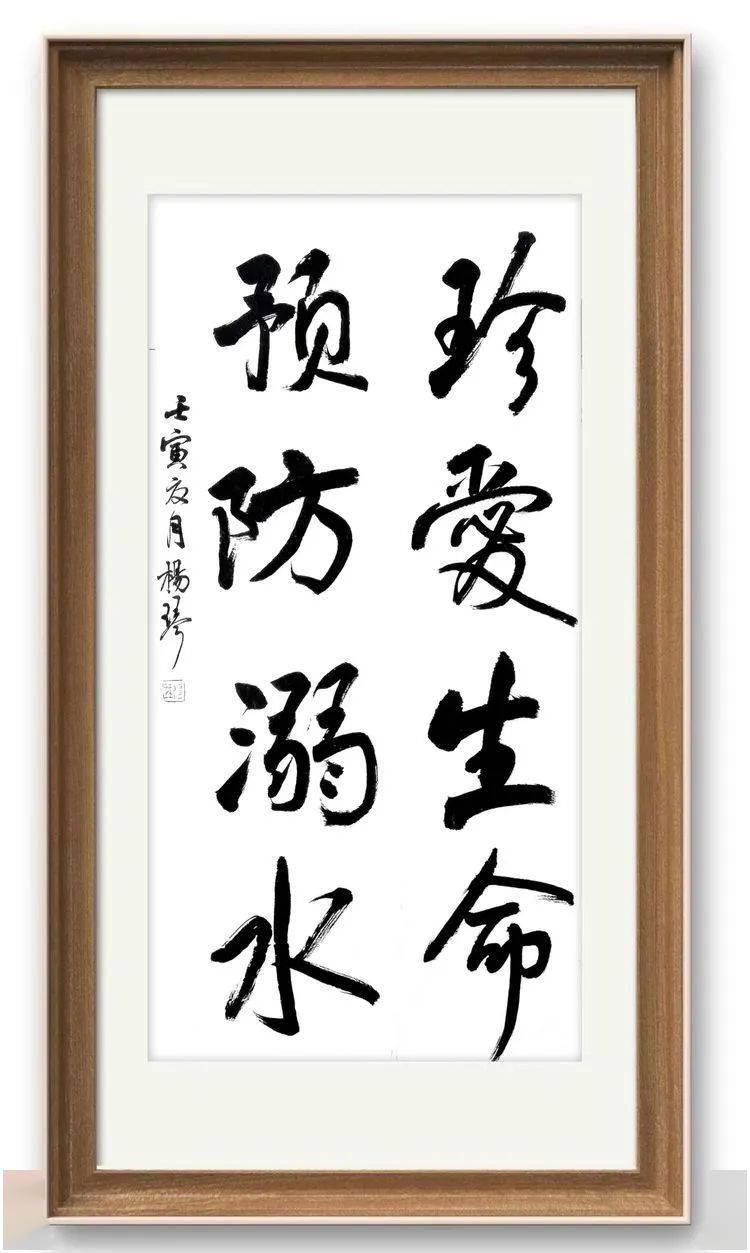 珍愛生命
预防溺水
壬寅夏月楊琴